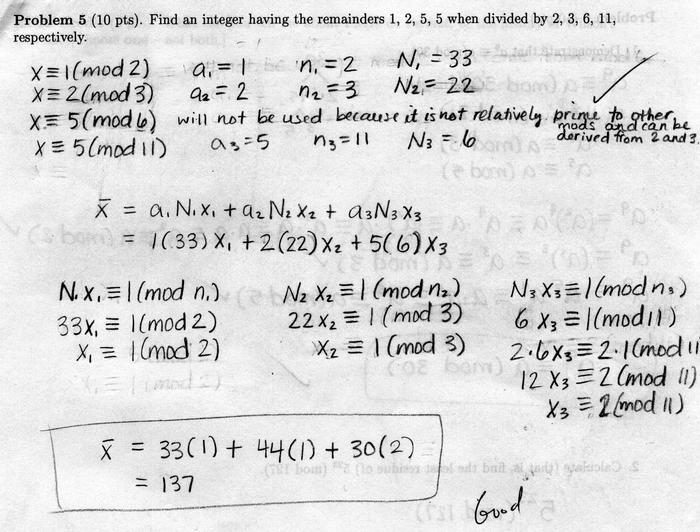 Problem 5 (10 pts). Find an integer having the remainders 1, 2, 5, 5 when divided by 2, 3, 6, 11,
respectively.
X ≡ 1 (mod 2) a₁ = 1 n₁ = 2 N₁ = 33
X ≡ 2 (mod 3) a₂ = 2 n₂ = 3 N₂ = 22
X ≡ 5 (mod 6) will not be used because it is not relatively prime to other
mods and can be
derived from 2 and 3.
X ≡ 5 (mod 11) a₃ = 5 n₃ = 11 N₃ = 6
x̄ = a₁N₁x₁ + a₂N₂x₂ + a₃N₃x₃
= 1(33)x₁ + 2(22)x₂ + 5(6)x₃
N₁x₁ ≡ 1 (mod n₁) N₂x₂ ≡ 1 (mod n₂) N₃x₃ ≡ 1 (mod n₃)
33x₁ ≡ 1 (mod 2) 22x₂ ≡ 1 (mod 3) 6x₃ ≡ 1 (mod 11)
x₁ ≡ 1 (mod 2) x₂ ≡ 1 (mod 3) 2·6x₃ ≡ 2·1 (mod 11
12x₃ ≡ 2 (mod 11)
x₃ ≡ 2 (mod 11)
x̄ = 33(1) + 44(1) + 30(2)
= 137
Good